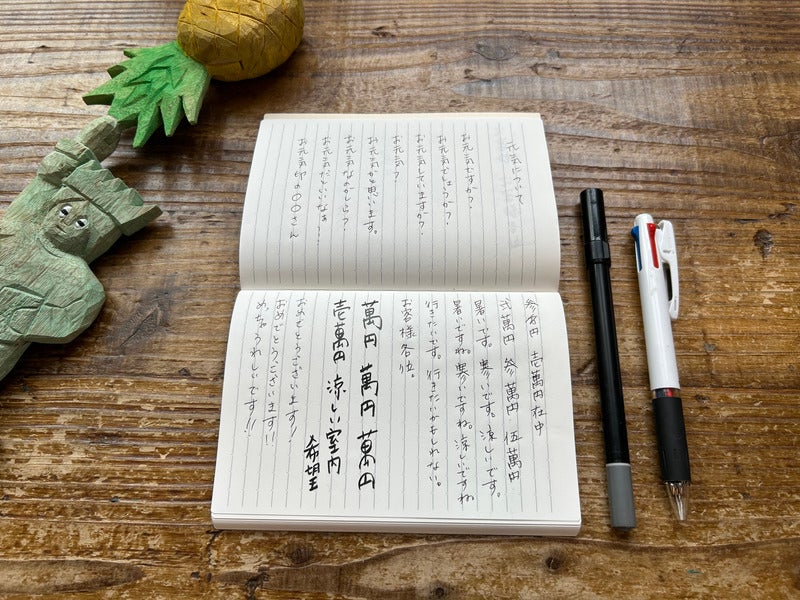 元気について
お元気ですか？
お元気でしょうか？
お元気していますか？
お元気？
お元気かと思います。
お元気なのかしら？
お元気だといいなぁ〜！
お元気印の〇〇さん
参萬円 壱萬円在中
弐萬円 参萬円 伍萬円
暑いです。寒いです。涼しいです。
暑いですね。寒いですね。涼しいですね
行きたいです。行きたいかもしれない。
お客様各位。
萬円 萬円 萬円
壱萬円 涼しい室内
希望
おめでとうございます！
おめでとうございます！！
めっちゃうれしいです！！